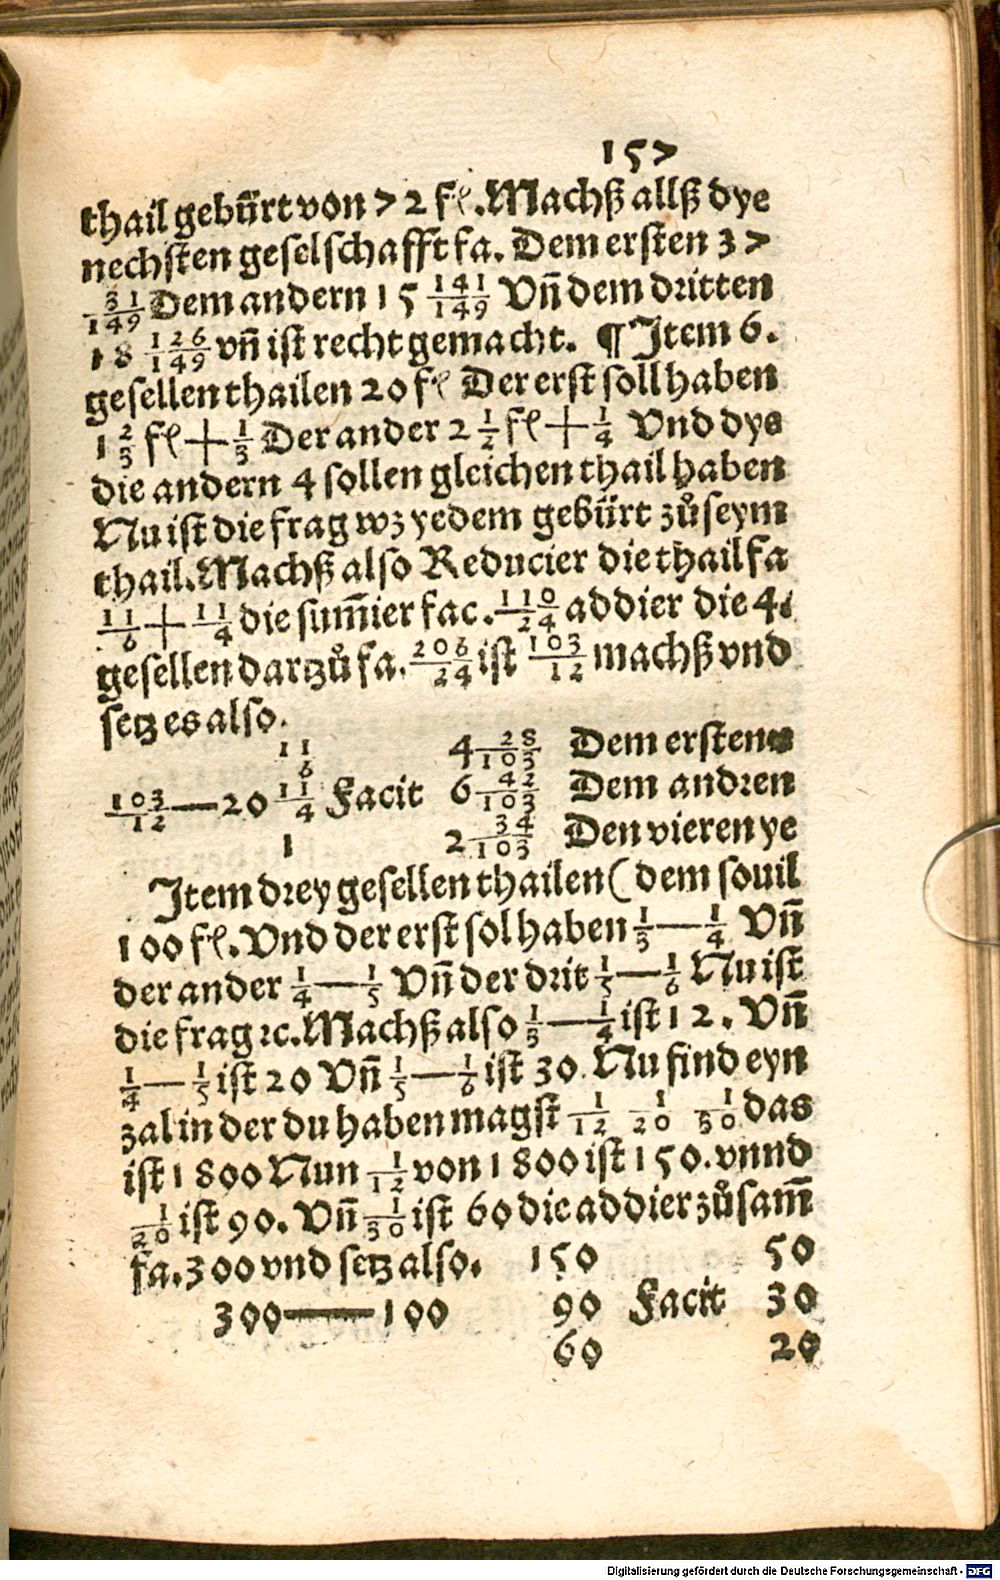 157
thail gebürt von 72 fl. Machß allß dye
nechsten geselschafft fa. Dem ersten 37
31/149 Dem andern 15 141/149 Vñ dem dritten
18 126/149 vñ ist recht gemacht. ¶ Item 6.
gesellen thailen 20 fl Der erst soll haben
1 2/3 fl + 1/3 Der ander 2 1/2 fl + 1/4 Vnd dye
die andern 4 sollen gleichen thail haben
Nu ist die frag wz yedem gebürt zůseym
thail. Machß also Reducier die thail fa
11/6 + 11/4 die sum̃ier fac. 110/24 addier die 4.
gesellen dartzů fa. 206/24 ist 103/12 machß vnd
setz es also.
11/6 4 28/103 Dem ersten
103/12 — 20 11/4 Facit 6 42/103 Dem andren
1 2 34/103 Den vieren ye
Item drey gesellen thailen ( dem souil
100 fl. Vnd der erst sol haben 1/3 — 1/4 Vñ
der ander 1/4 — 1/5 Vñ der drit 1/5 — 1/6 Nu ist
die frag ꝛc. Machß also 1/3 — 1/4 ist 12. Vñ
1/4 — 1/5 ist 20 Vñ 1/5 — 1/6 ist 30 Nu find eyn
zal in der du haben magst 1/12 1/20 1/30 das
ist 1800 Nun 1/12 von 1800 ist 150. vnnd
1/20 ist 90. Vñ 1/30 ist 60 die addier zůsam̃
fa. 300 vnd setz also. 150 50
300 — 100 90 Facit 30
60 20
Digitalisierung gefördert durch die Deutsche Forschungsgemeinschaft - DFG